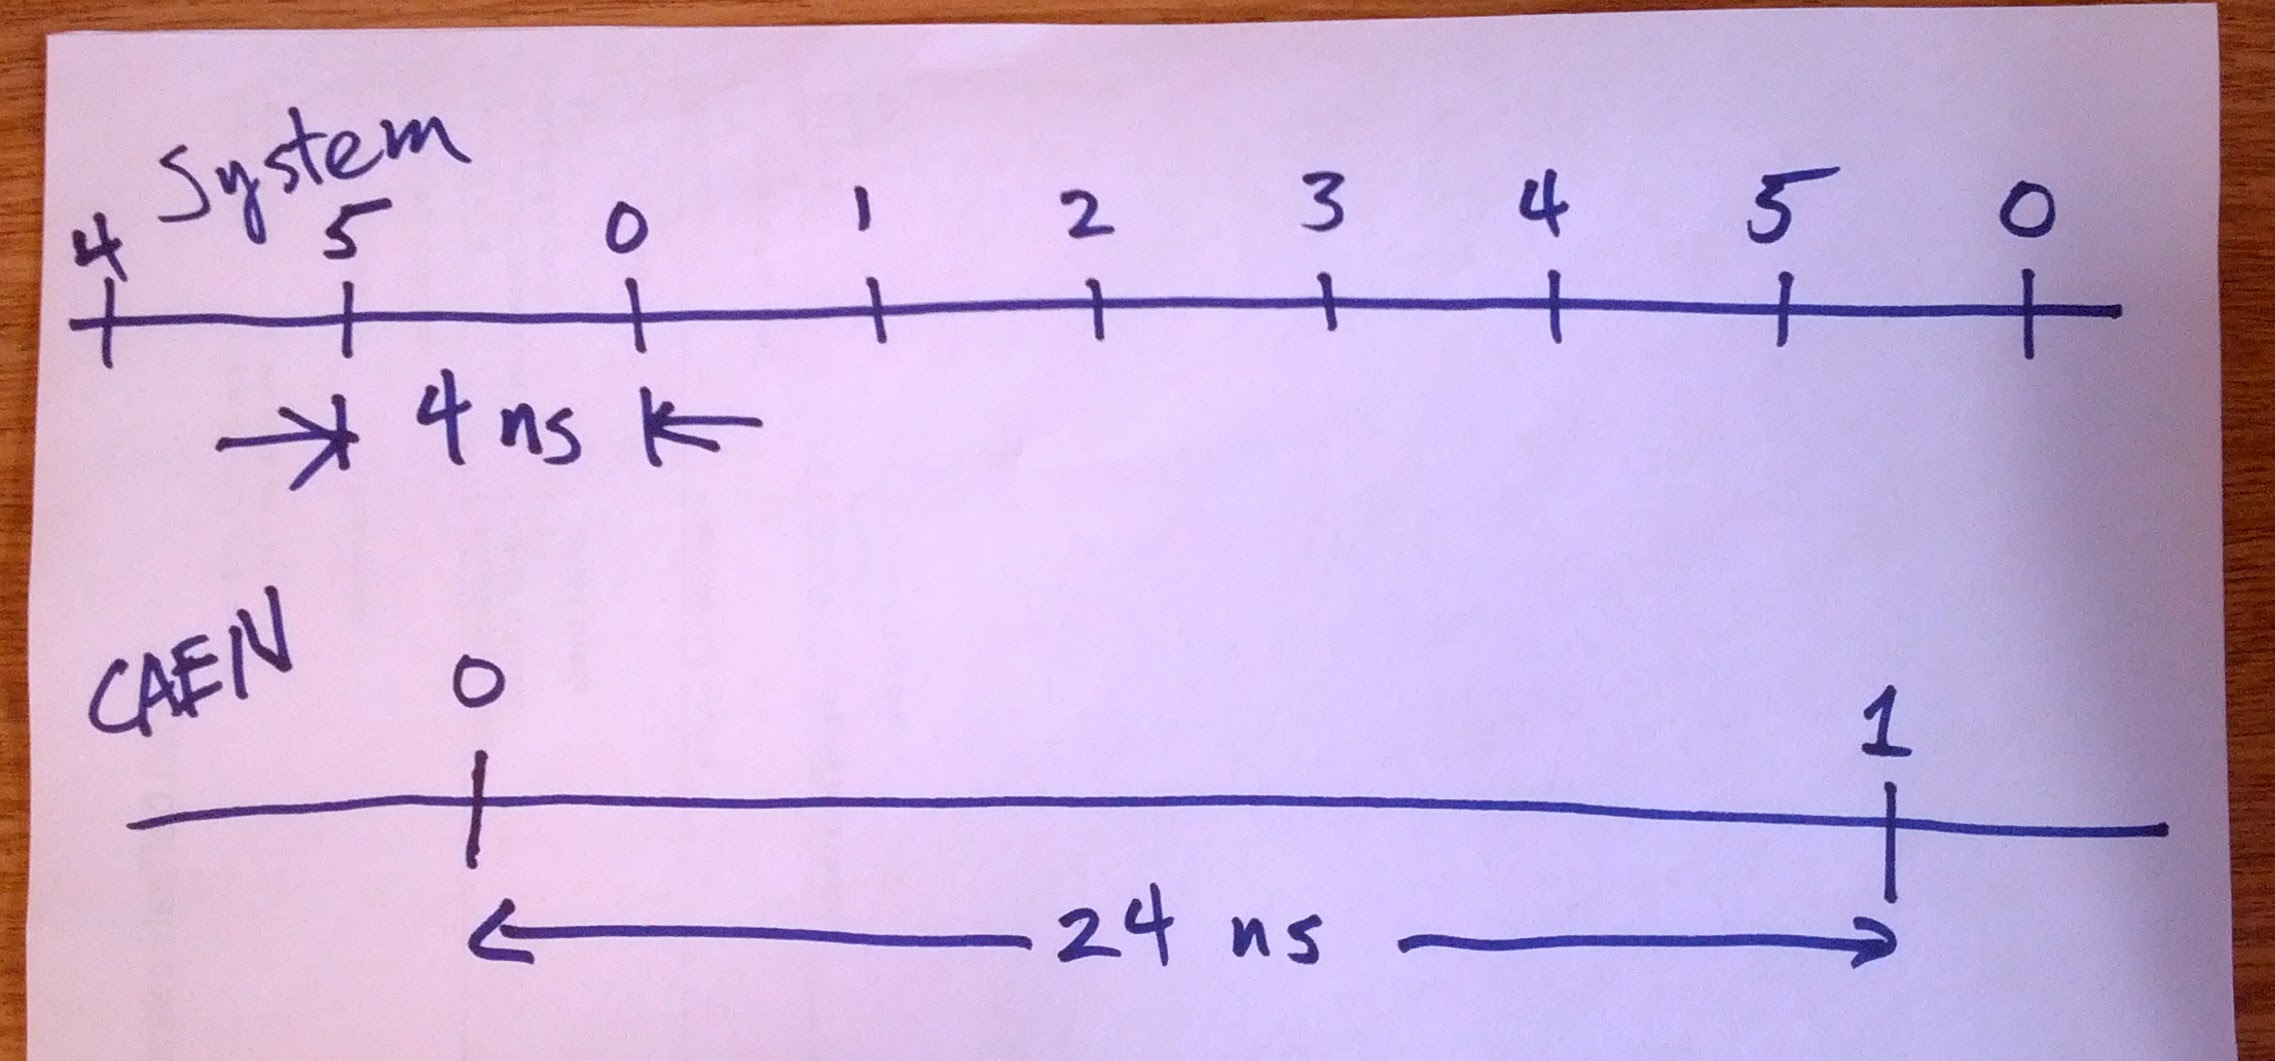 System
4 5 0 1 2 3 4 5 0
4 ns
CAEN
0 1
24 ns